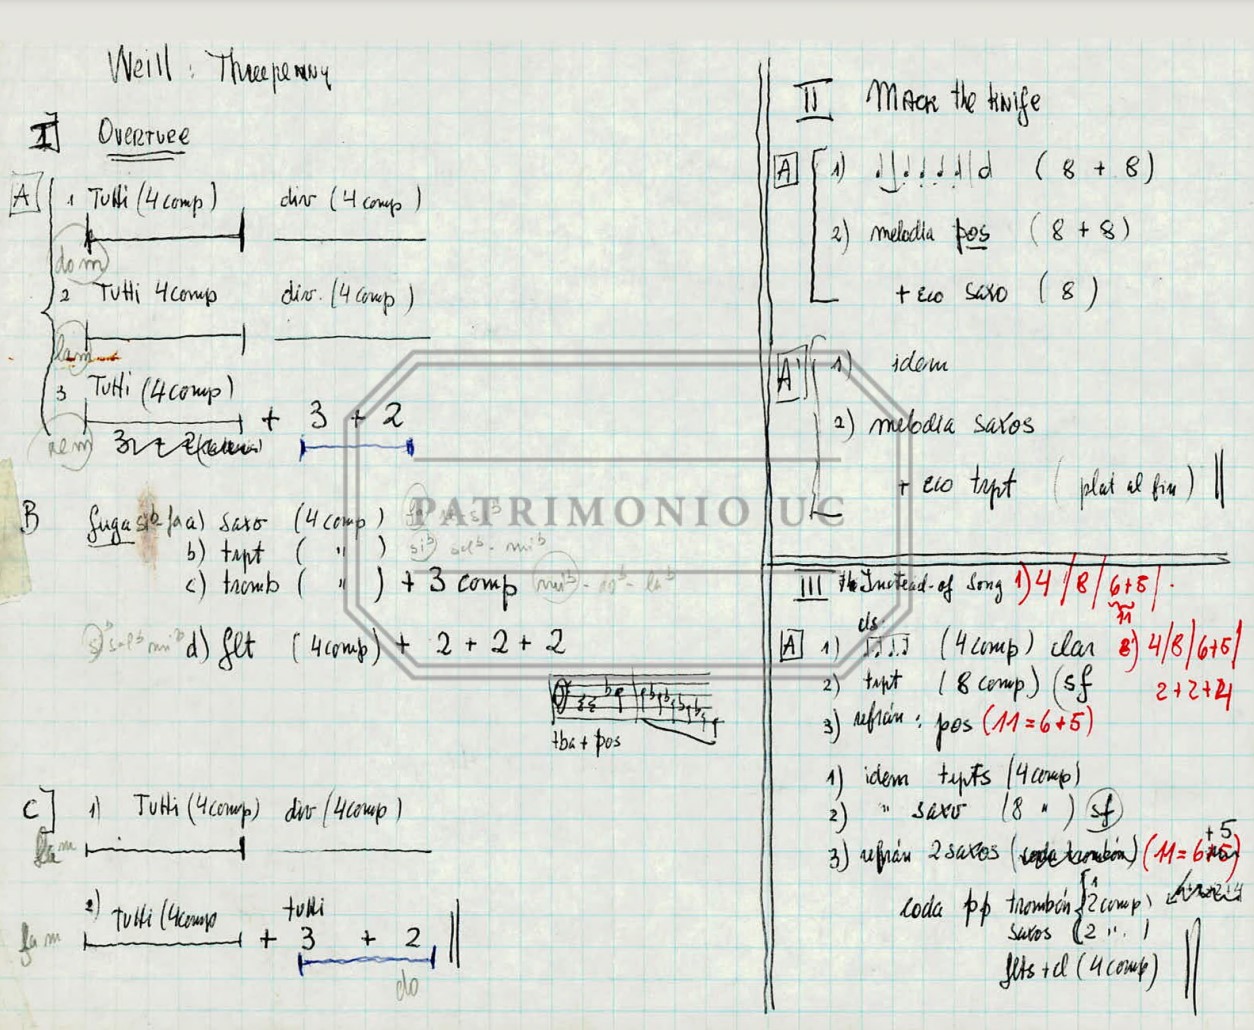 Weill : Threepenny
I] OVERTURE
A 1 Tutti (4 comp) div (4 comp)
do m
2 Tutti 4 comp div. (4 comp)
la m
3 Tutti (4 comp) + 3 + 2
re m
B fuga a) saxo (4 comp)
b) trpt ( " )
c) tromb ( " ) + 3 comp
d) flt (4 comp) + 2 + 2 + 2
tba + pos
C] 1) Tutti (4 comp) div (4 comp)
fa m
2) tutti (4 comp tutti
fa m + 3 + 2
do
II Mack the knife
A 1) (8 + 8)
2) melodia pos (8 + 8)
+ eco saxo (8)
A' 1) idem
2) melodia saxos
+ eco trpt (plat al fin)
III Instead-of song 1) 4 / 8 / 6+5 /
11
A 1) (4 comp) clar 2) 4/8/6+5/
2) trpt (8 comp) (sf 2+2+4
3) refrán : pos (11=6+5)
1) idem trpts (4 comp)
2) " saxo (8 " ) sf
+5
3) refrán 2 saxos (coda trombón) (11=6+5)
coda pp trombón (2 comp)
saxos (2 " )
flts + cl (4 comp)
PATRIMONIO UC